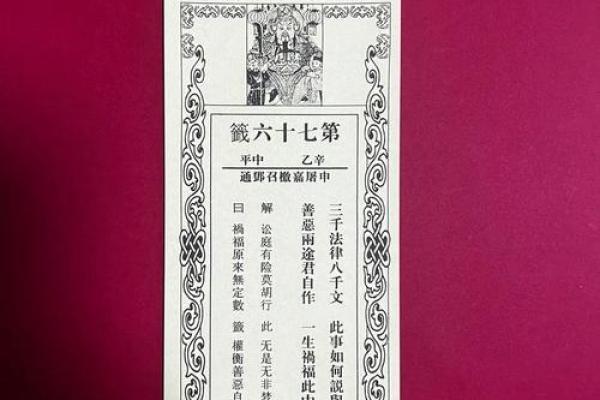 第七十六籤
辛乙 中平
申屠嘉檄召鄧通
三千法律八千文 此事如何説與
善惡兩途君自作 一生禍福此中
解 訟庭有險莫胡行 此 无是无非梦
曰 禍福原來無定數 籤 權衡善惡自